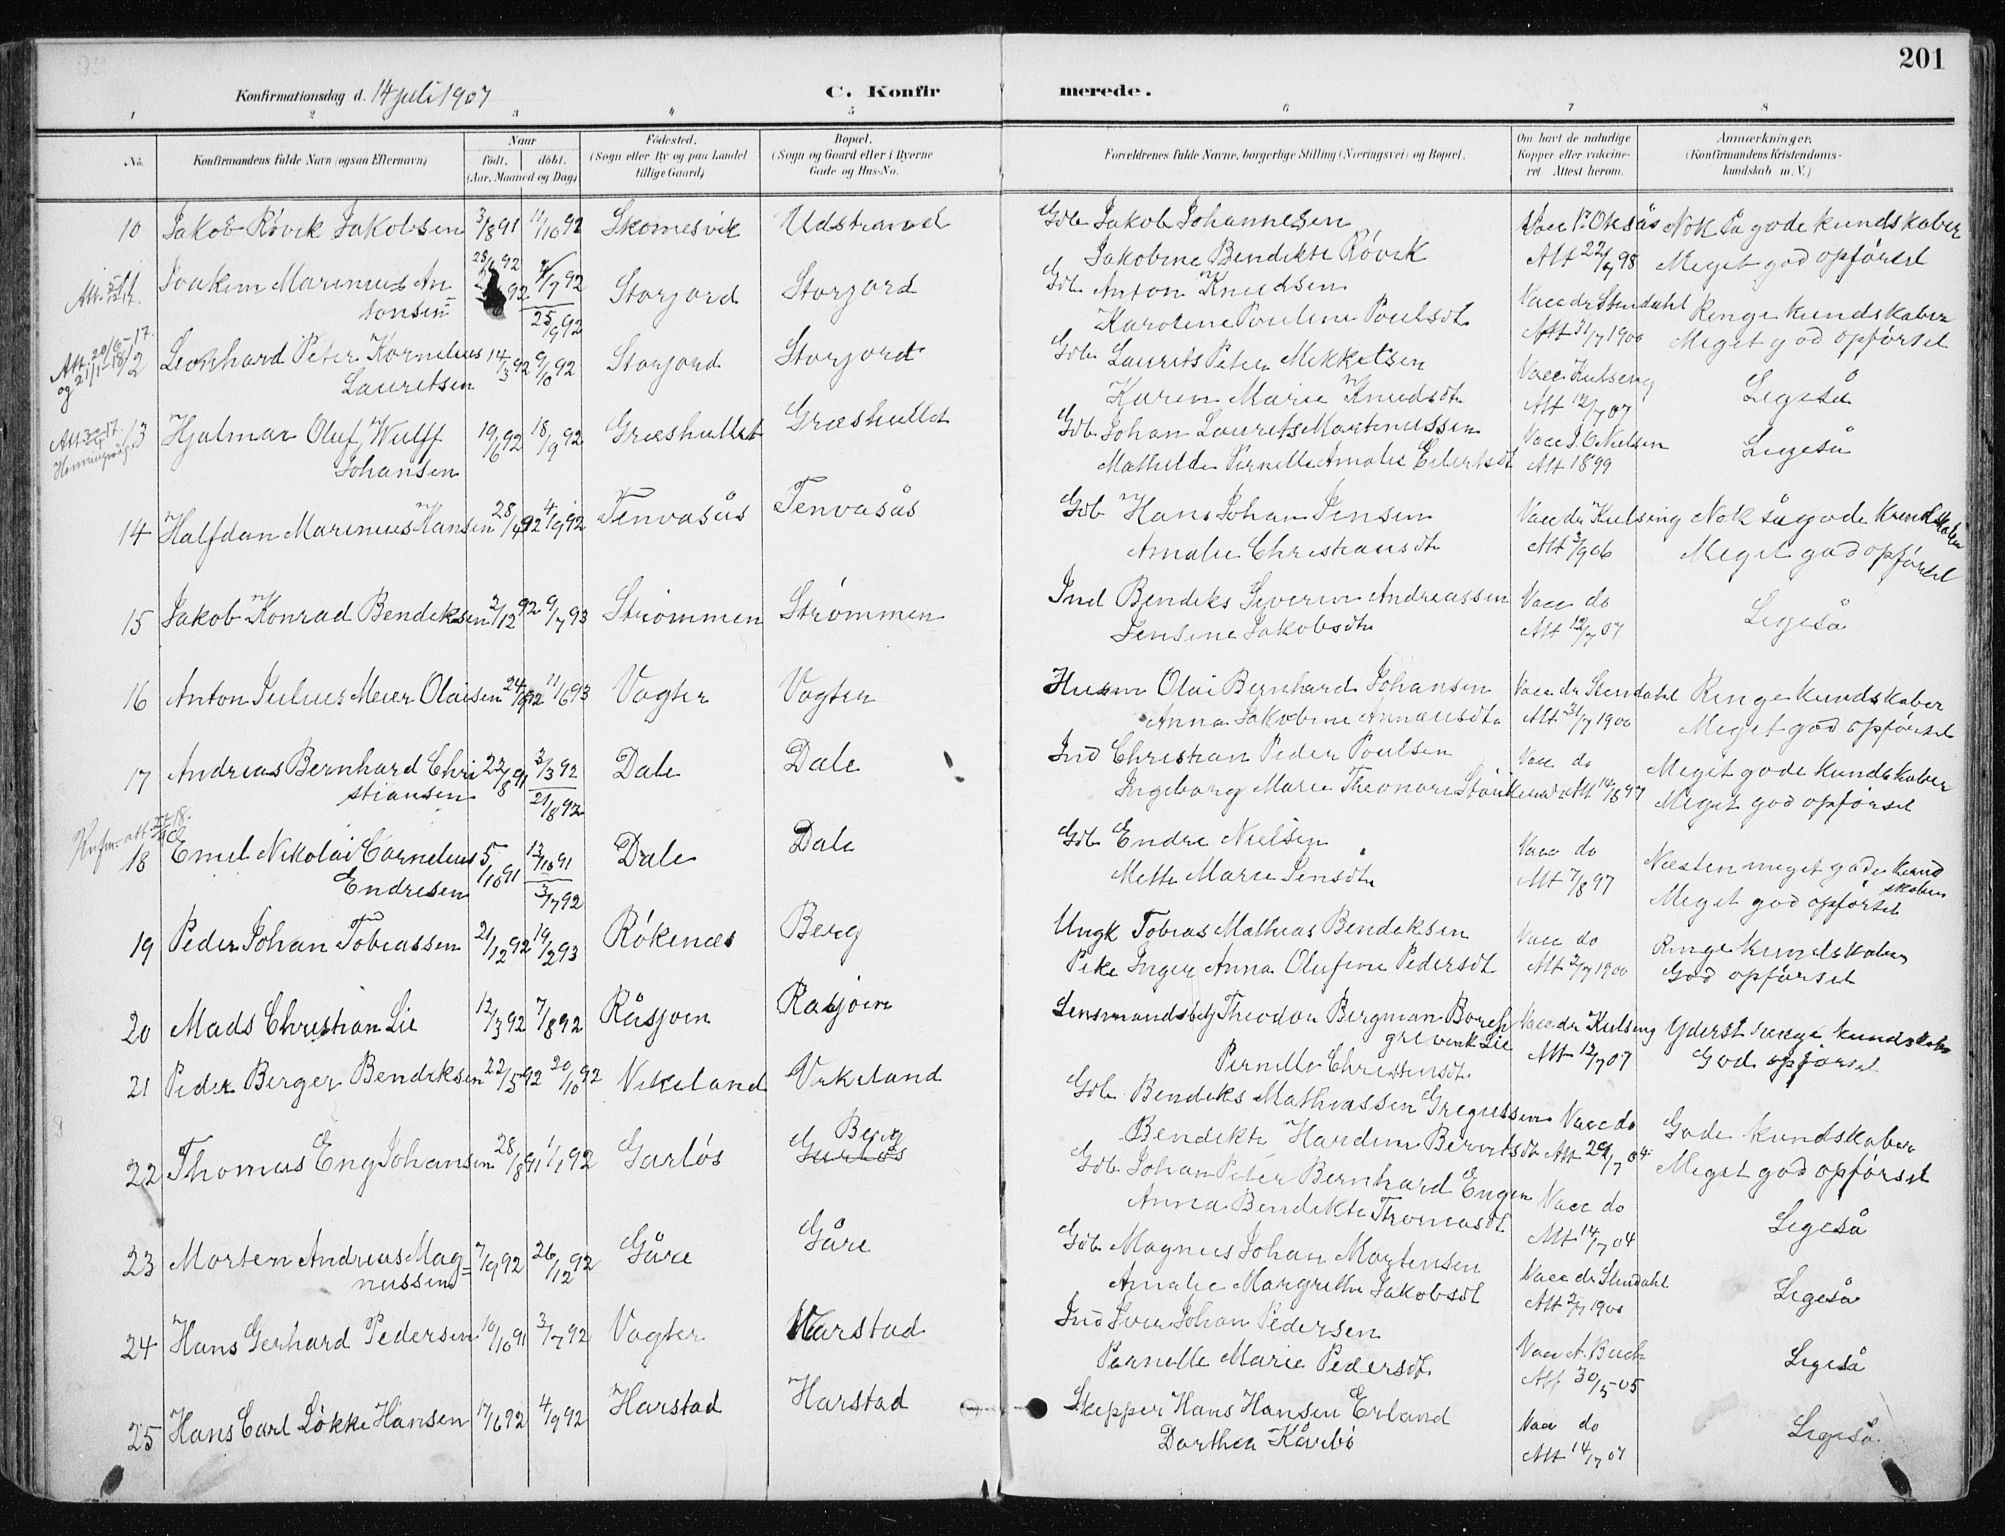 201
Konfirmationsdag d. 14 juli 1907
C. Konfirmerede.
1 2 3 4 5 6 7 8
No.
Konfirmandens fulde Navn (ogsaa Efternavn)
Naar
født, døbt.
(Aar, Maaned og Dag)
Fødested.
(Sogn eller By og paa Landet
tillige Gaard)
Bopæl.
(Sogn og Gaard eller i Byerne
Gade og Hus-No.
Forældrenes fulde Navne, borgerlige Stilling (Næringsvei) og Bopæl.
Om havt de naturlige
Kopper eller vakcine-
ret Attest herom.
Anmærkninger,
(Konfirmandens Kristendoms-
kundskab m. V.)
10 Jakob Røvik Jakobsen 3/8 91 11/10 92 Skomesvik Udstrand Gdb Jakob Johannesen Vacc P. Oksås Nok så gode kundskaber
Jakobine Bendikte Røvik Att 22/6 98 Meget god opførsel
Joakim Marinius An= Storjord Storjord Gdb Anton Knudsen Vacc dr Stendahl Ringe kundskaber
tonsen 25/9 92 Karoline Pouline Poulsdt Att 31/7 1900 Meget god opførsel
12 Leonhard Peter Kornelius 14/3 92 9/10 92 Storjord Storjord Gdb Laurits Peter Mikkelsen Vacc Kulseng Ligeså
Lauritsen Karen Marie Knudsdt Att 12/7 07
13 Hjalmar Oluf Wulff 19/6 92 18/9 92 Græshullet Græshullet Gdb Johan Laurits Martinussen Vacc J. C. Nielsen Ligeså
Johansen Mathilde Pernille Amalie Eilertsdt Att 1899
14 Halfdan Marinius Hansen 28/4 92 4/9 92 Tenvasås Tenvasås Gdb Hans Johan Jensen Vacc dr Kulseng Nok så gode kundskaber
Amalie Christiansdt Att 3/9 06 Meget god opførsel
15 Jakob Konrad Bendiksen 2/12 92 9/7 93 Strømmen Strømmen Ind Bendiks Severin Andreassen Vacc do Ligeså
Jensine Jakobsdt Att 12/7 07
16 Anton Julius Meier Olaisen 24/9 92 11/6 93 Vagter Vagter Husm Olai Bernhard Johansen Vacc dr Stendahl Ringe kundskaber
Anna Jakobine Annæusdt Att 31/7 1900 Meget god opførsel
17 Andreas Bernhard Chri 22/8 91 3/3 92 Dale Dale Ind Christian Peder Poulsen Vacc do Meget gode kundskaber
stiansen 21/8 92 Ingeborg Marie Att 14/8 97 Meget god opførsel
18 Emil Nikolai Cornelius 5/10 91 12/10 91 Dale Dale Gdb Endre Nielsen Vacc do Næsten meget gode kund
Endresen 3/7 92 Mette Marie Jensdt Att 7/8 97 skaber
Meget god opførsel
19 Peder Johan Tobiassen 21/12 92 19/2 93 Røkenæs Berg Ungk Tobias Mathias Bendiksen Vacc do Ringe kundskaber
Pike Inger Anna Olufine Pedersdt Att 2/7 1900 God opførsel
20 Mads Christian Lie 12/3 92 7/8 92 Råsjøen Råsjøen Lensmandsbetj Theodor Bergman Borch Vacc dr Kulseng Yderst ringe kundskaber
grevink Lie
Pernille Christensdt Att 12/7 07 God opførsel
21 Peder Berger Bendiksen 22/5 92 20/10 92 Vikeland Vikeland Gdb Bendiks Mathiassen Gregussen Vacc do Gode kundskaber
Bendikte Hardine Berntsdt Att 29/7 04 Meget god opførsel
22 Thomas Eng Johansen 28/8 91 1/1 92 Garløs Berg Garløs Gdb Johan Peter Bernhard Engen Vacc do Ligeså
Anna Bendikte Thomasdt Att 14/7 04
23 Morten Andreas Mag= 7/9 92 26/12 92 Gåre Gåre Gdb Magnus Johan Mortensen Vacc dr Stendahl Ligeså
nussen Amalie Margrethe Jakobsdt Att 2/7 1900
24 Hans Gerhard Pedersen 10/10 91 3/7 92 Vagter Harstad Ind Iver Johan Pedersen Vacc A. Buch Ligeså
Pernille Marie Pedersdt Att 30/5 05
25 Hans Carl Løkke Hansen 17/6 92 4/9 92 Harstad Harstad Skipper Hans Hansen Erland Vacc do Ligeså
Dorthea Kårbø Att 14/7 07